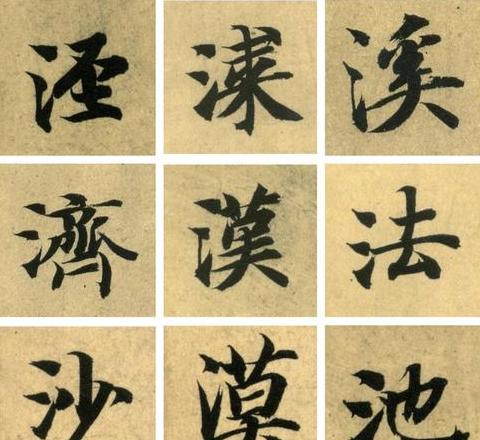 涇 溪
濟 漢 法
沙 漠 池